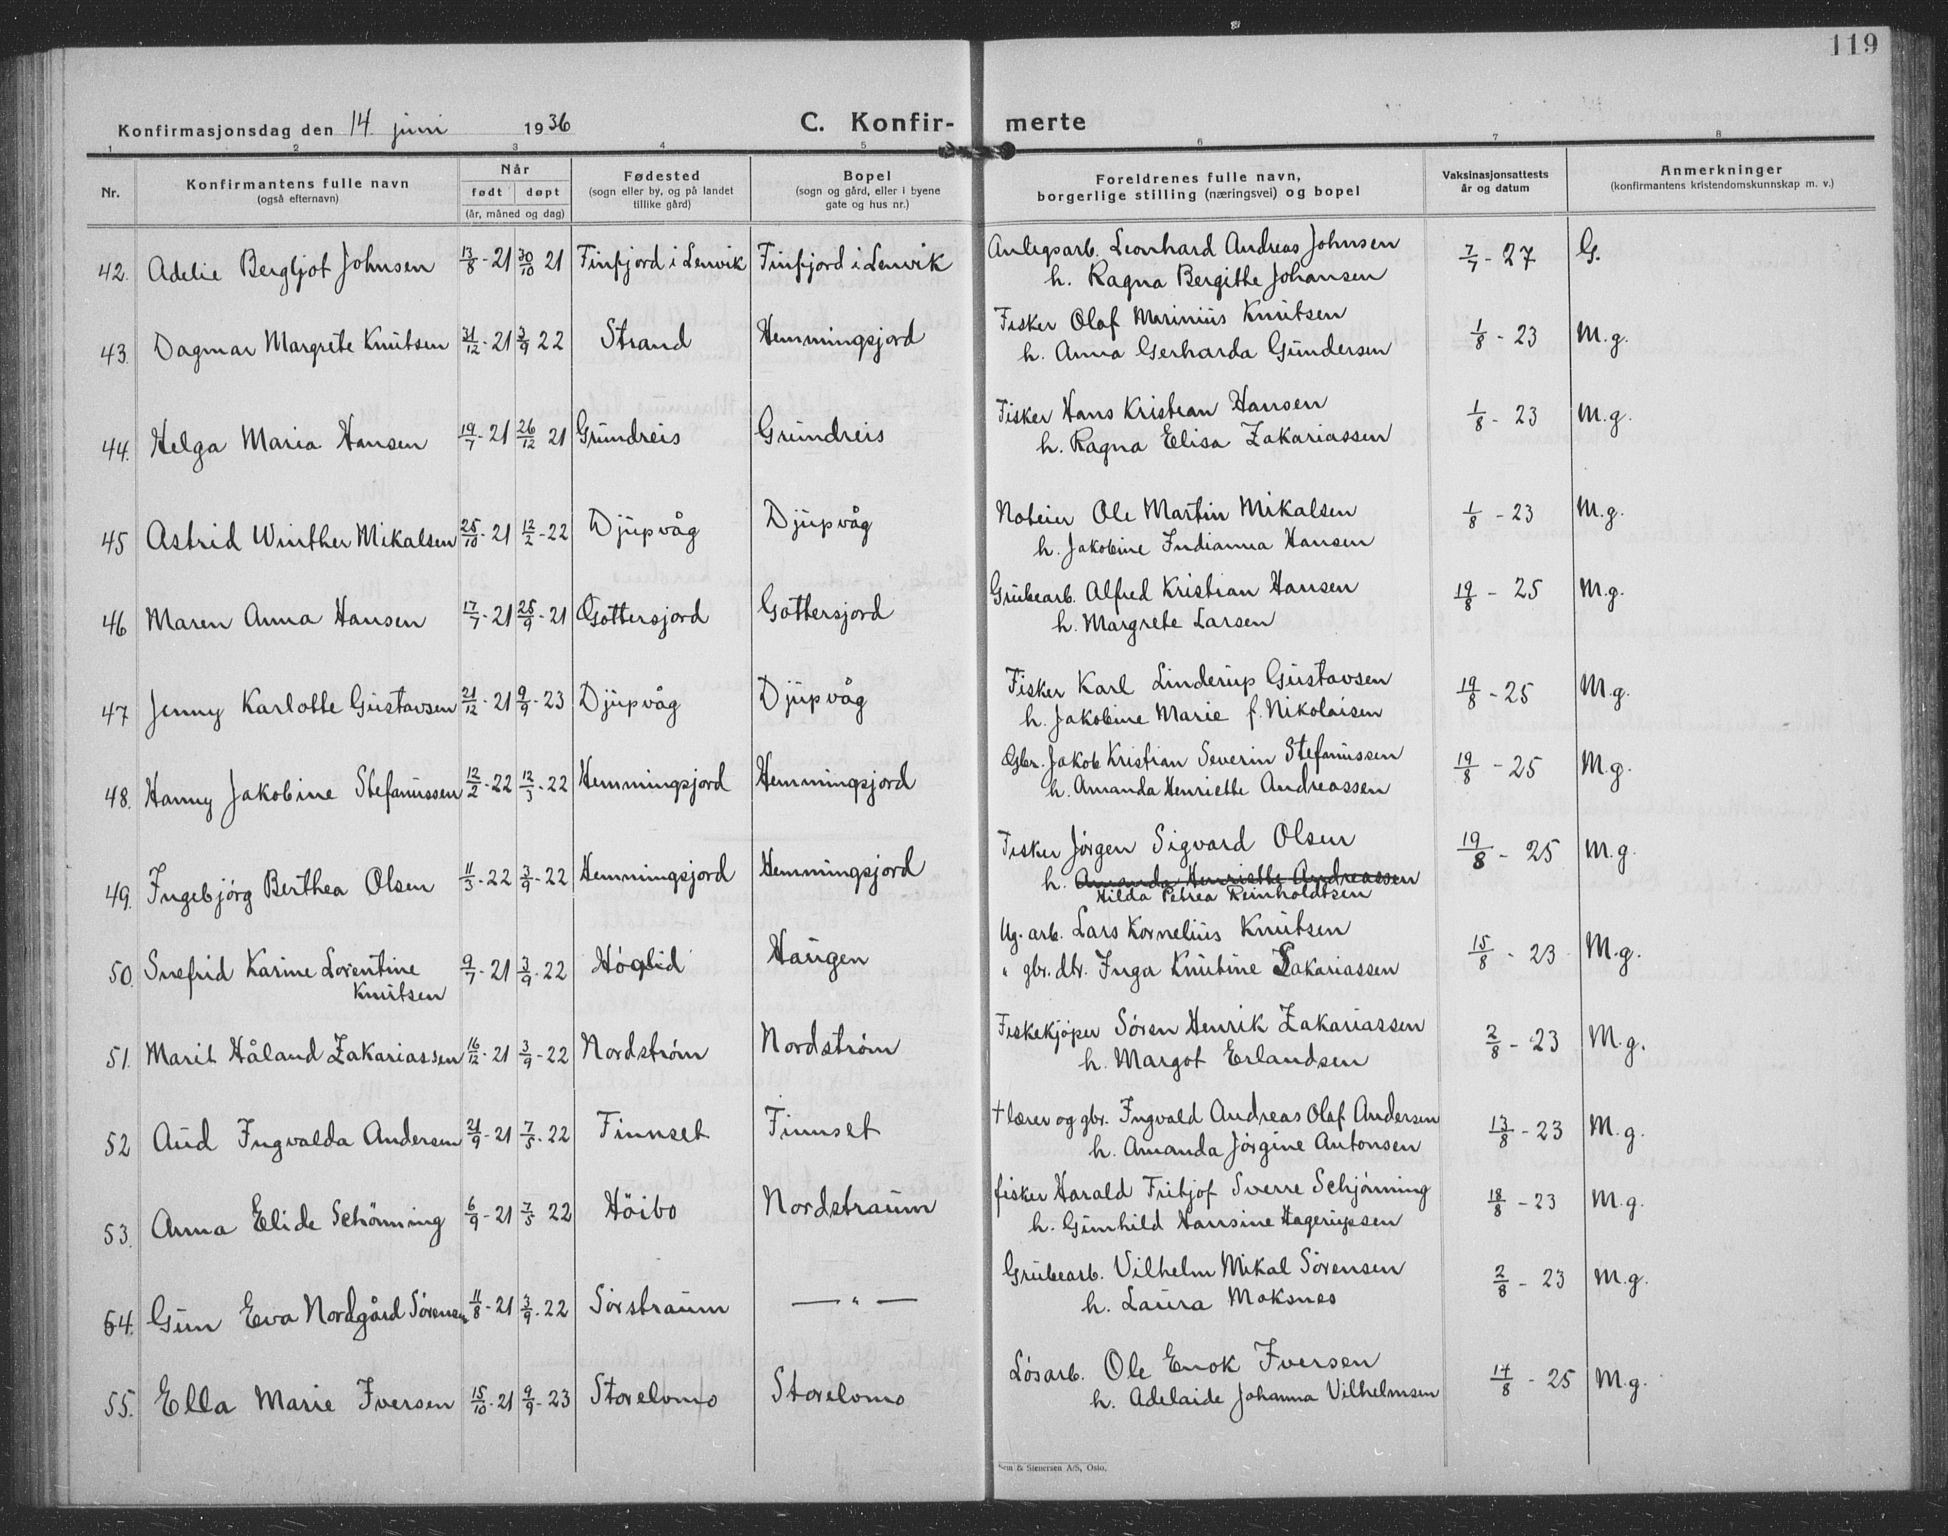 119
Konfirmasjonsdag den 14 juni 1936 C. Konfir- merte
1 2 3 4 5 6 7 8
Nr. Konfirmantens fulle navn (også efternavn) Når født døpt (år, måned og dag) Fødested (sogn eller by, og på landet tillike gård) Bopel (sogn og gård, eller i byene gate og hus nr.) Foreldrenes fulle navn, borgerlige stilling (næringsvei) og bopel Vaksinasjonsattests år og datum Anmerkninger (konfirmantens kristendomskunnskap m. v.)
42. Adelie Bergljot Johnsen 13/8-21 30/10 21 Finfjord i Lenvik Finfjord i Lenvik Anlegsarb. Leonhard Andreas Johnsen 7/7-27 G.
h. Ragna Bergitte Johansen
43. Dagmar Margrete Knutsen 31/12-21 3/9 22 Strand Hemmingsjord Fisker Olaf Marinius Knutsen 1/8-23 M.g.
h. Anna Gerharda Gundersen
44. Helga Maria Hansen 19/7-21 26/12 21 Grundreis Grundreis Fisker Hans Kristian Hansen 1/8-23 M.g.
h. Ragna Elisa Zakariassen
45 Astrid Winther Mikalsen 25/10-21 12/2-22 Djupvåg Djupvåg Noteier Ole Martin Mikalsen 1/8-23 M.g.
h. Jakobine Indianna Hansen
46 Maren Anna Hansen 17/7-21 25/9-21 Gottersjord Gottersjord Grubearb. Alfred Kristian Hansen 19/8-25 M.g.
h. Margrete Larsen
47 Jenny Karlotte Gustavsen 21/12-21 9/9-23 Djupvåg Djupvåg Fisker Karl Linderup Gustavsen 19/8-25 M.g.
h. Jakobine Marie f. Nikolaisen
48. Hanny Jakobine Stefanussen 12/2-22 12/3-22 Hemmingsjord Hemmingsjord Gbr. Jakob Kristian Severin Stefanussen 19/8-25 M.g.
h. Amanda Henriette Andreassen
49. Ingebjörg Berthea Olsen 11/3-22 3/9-22 Hemmingsjord Hemmingsjord Fisker Jørgen Sigvard Olsen 19/8-25 M.g.
h. Amanda Henriette Andreassen
Hilda Petrea Reinholdtsen
50. Snefrid Karine Lorentine 9/7-21 3/9-22 Höglid Haugen Ug. arb. Lars Kornelius Knutsen 15/8-23 M.g.
Knutsen " gbr. dtr. Inga Knutine Zakariassen
51. Marit Håland Zakariassen 16/12-21 3/9-22 Nordstrøm Nordstrøm Fiskekjøper Søren Henrik Zakariassen 2/8-23 M.g.
h. Margot Erlandsen
52 Aud Ingvalda Andersen 21/9-21 7/5-22 Finnset Finnset † lærer og gbr. Ingvald Andreas Olaf Andersen 13/8-23 M.g.
h. Amanda Jörgine Antonsen
53. Anna Elide Schönning 6/9-21 7/5 22 Höibo Nordstraum fisker Harald Fritjof Sverre Schjönning 18/8-23 M.g.
h. Gunhild Hansine Hagerupsen
54. Gun Eva Nordgård Sörensen 11/8-21 3/9-22 Sörstraum — " — Grubearb. Vilhelm Mikal Sörensen 2/8-23 M.g.
h. Laura Moksnes
55. Ella Marie Iversen 15/10-21 9/9-23 Storelvmo Storelvmo Løsarb. Ole Enok Iversen 14/8-25 M.g.
h. Adelaide Johanna Vilhelmsen
& Stenersen A/S, Oslo.